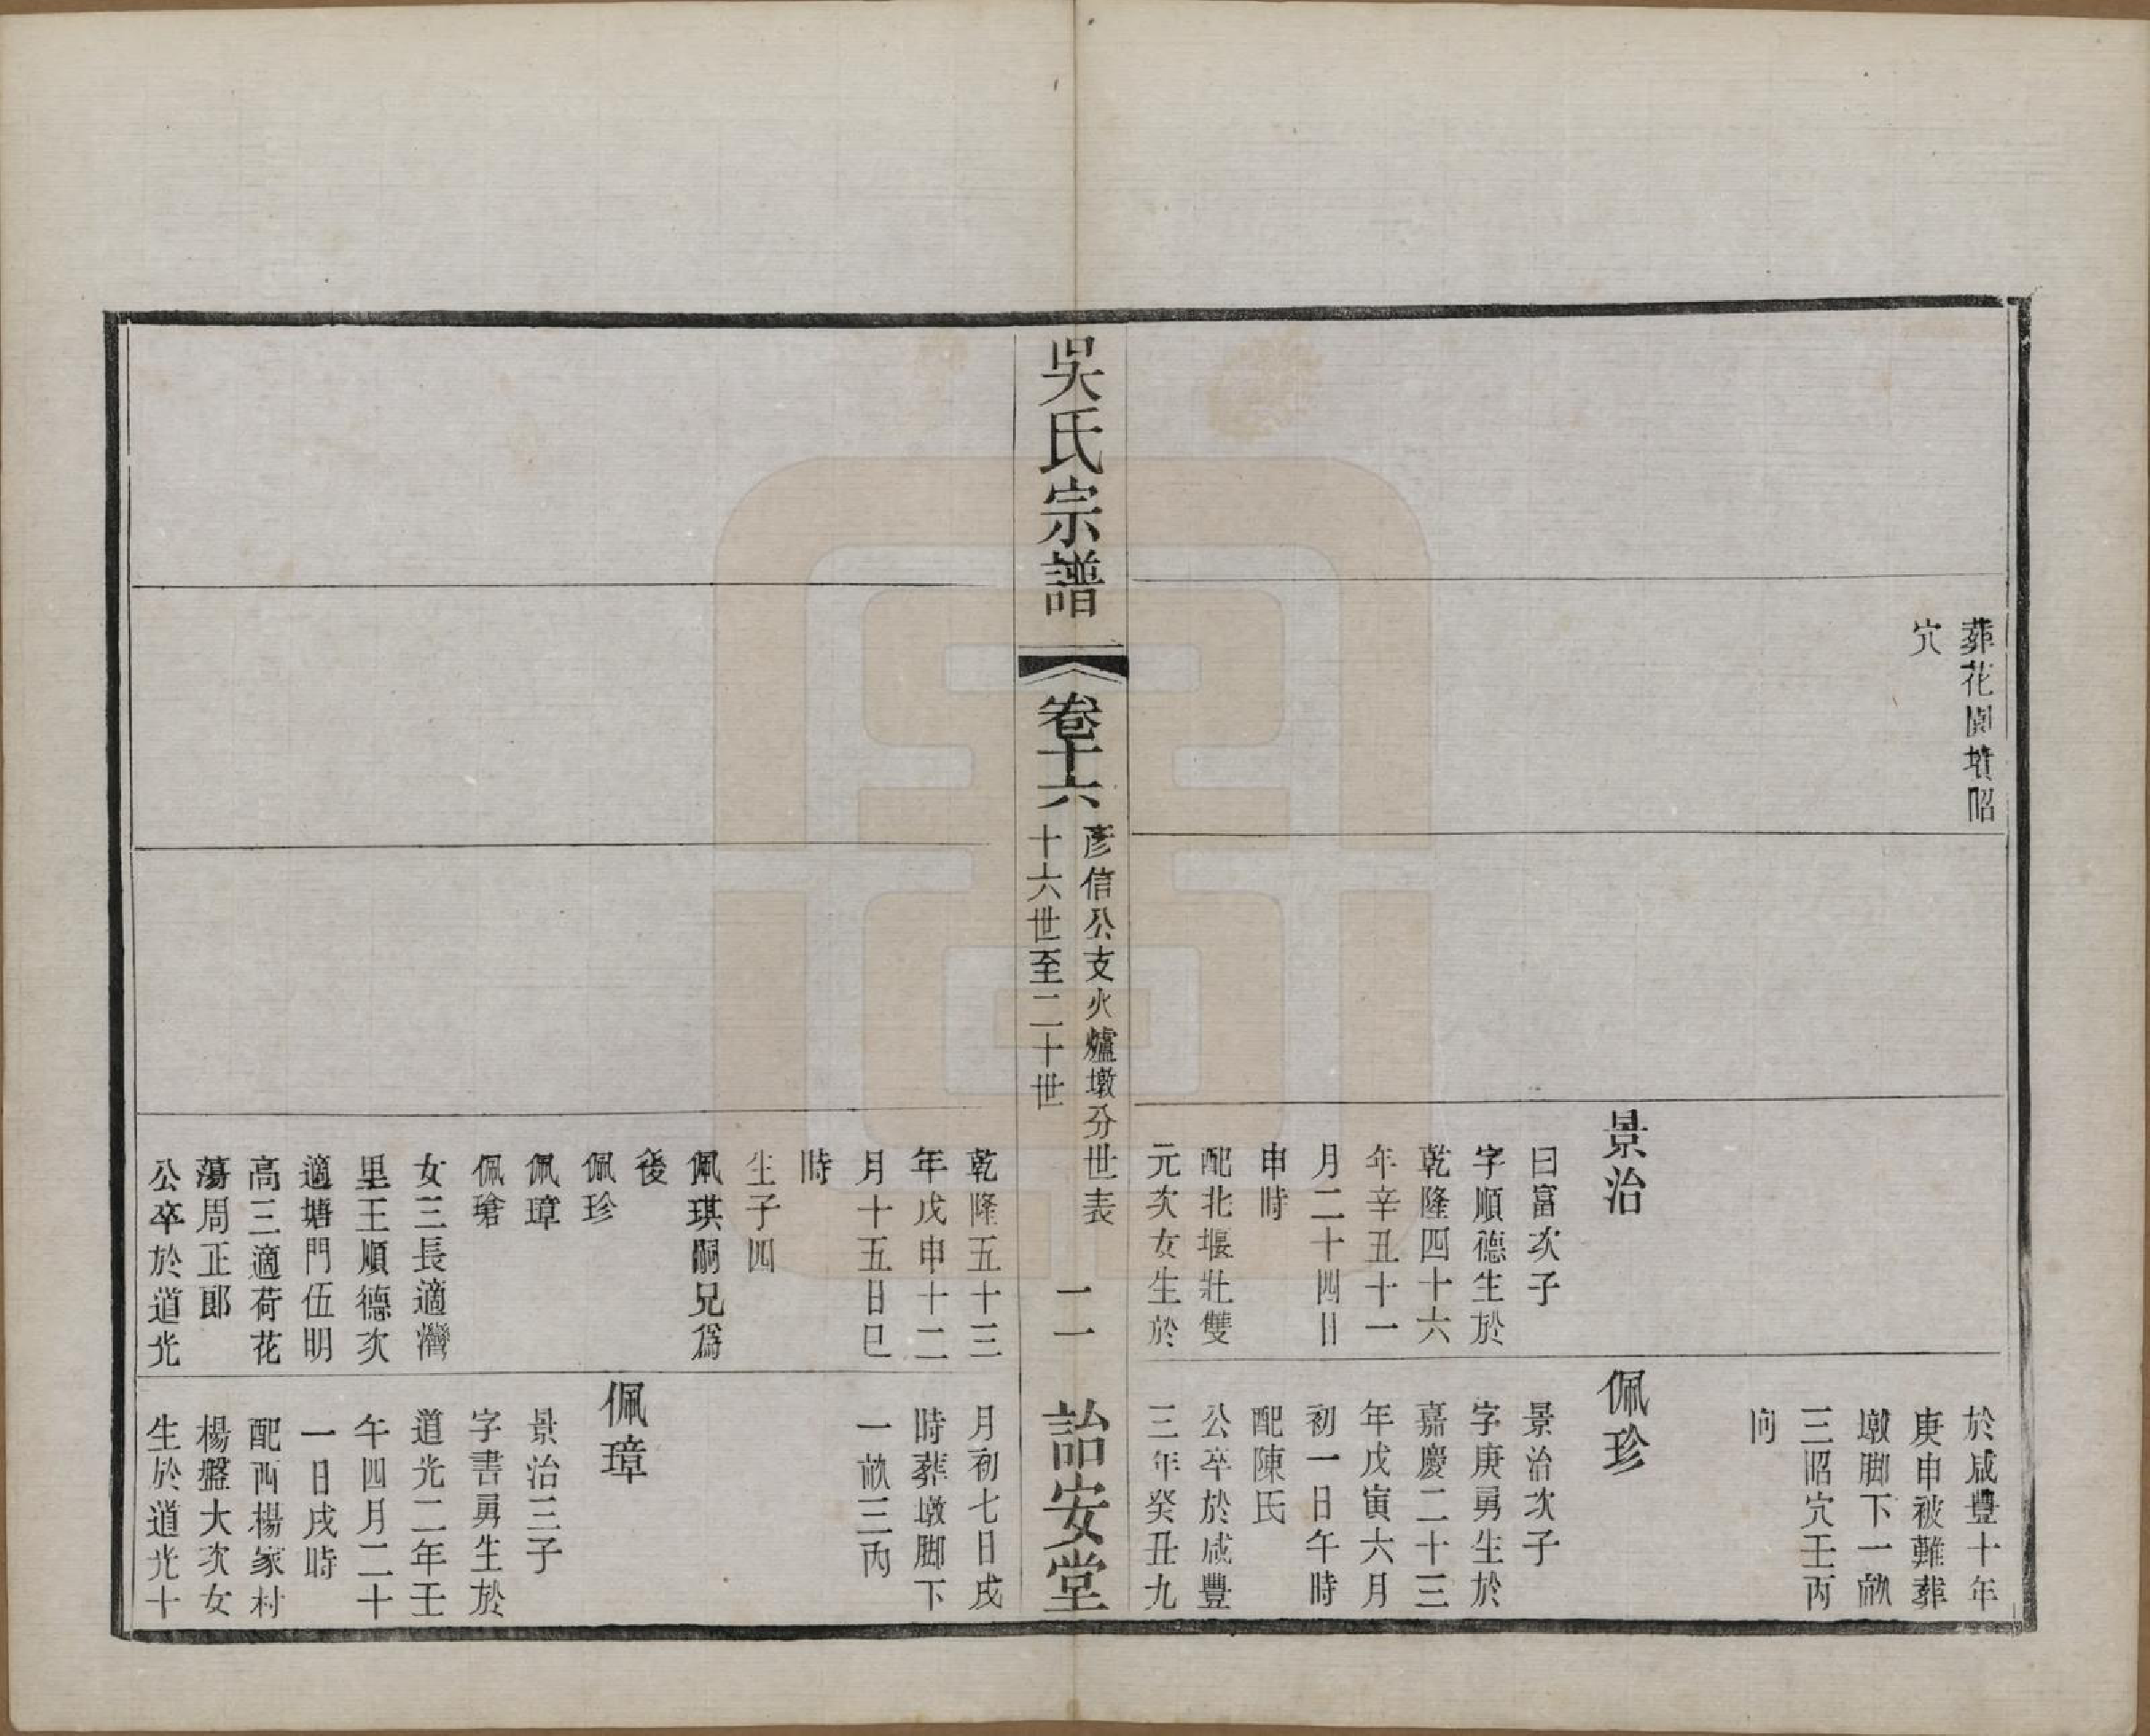 葬花園墳昭
穴
景治
曰富次子
字順德生於
乾隆四十六
年辛丑十一
月二十四日
申時
配北堰莊雙
元次女生於
於咸豐十年
庚申被難葬
墩脚下一畝
三昭穴壬丙
向
佩珍
景治次子
字庚勇生於
嘉慶二十三
年戊寅六月
初一日午時
配陳氏
公卒於咸豐
三年癸丑九
吳氏宗譜
卷十六
彥信公支火爐墩分世表
十六世至二十世
二一
詒安堂
乾隆五十三
年戊申十二
月十五日巳
時
生子四
佩琪嗣兄爲
後
佩珍
佩璋
佩瑲
女三長適灣
里王順德次
適塘門伍明
高三適荷花
蕩周正郎
公卒於道光
月初七日戌
時葬墩脚下
一畝三丙
佩璋
景治三子
字書勇生於
道光二年壬
午四月二十
一日戌時
配西楊家村
楊盤大次女
生於道光十